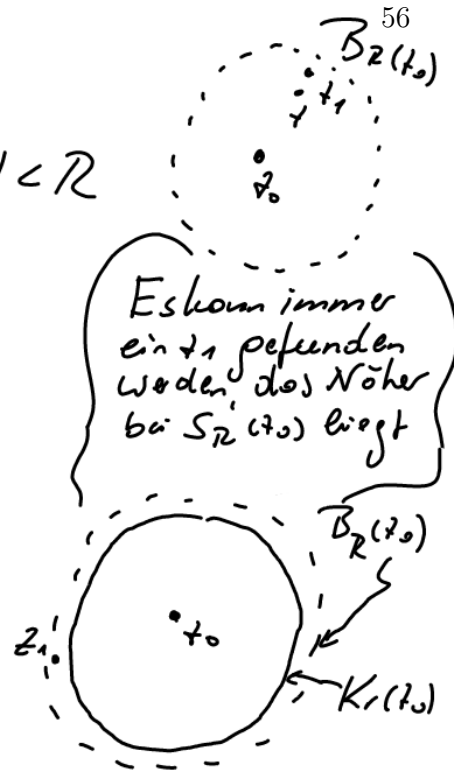 56
B_R(z_0)
z_1
z
| < R
z_0
Es kann immer
ein z_1 gefunden
werden, das Näher
bei S_R(z_0) liegt
B_R(z_0)
z_0
z_1
K_r(z_0)